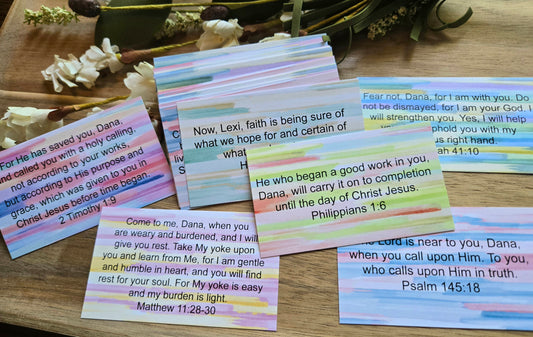 For He has saved you, Dana,
and called you with a holy calling,
not according to your works,
but according to His purpose and
grace, which was given to you in
Christ Jesus before time began.
2 Timothy 1:9
Now, Lexi, faith is being sure of
what we hope for and certain of
Fear not, Dana, for I am with you. Do
not be dismayed, for I am your God. I
will strengthen you. Yes, I will help
uphold you with my
right hand.
41:10
He who began a good work in you,
Dana, will carry it on to completion
until the day of Christ Jesus.
Philippians 1:6
Come to me, Dana, when you
are weary and burdened, and I will
give you rest. Take My yoke upon
you and learn from Me, for I am gentle
and humble in heart, and you will find
rest for your soul. For My yoke is easy
and my burden is light.
Matthew 11:28-30
Lord is near to you, Dana,
when you call upon Him. To you,
who calls upon Him in truth.
Psalm 145:18